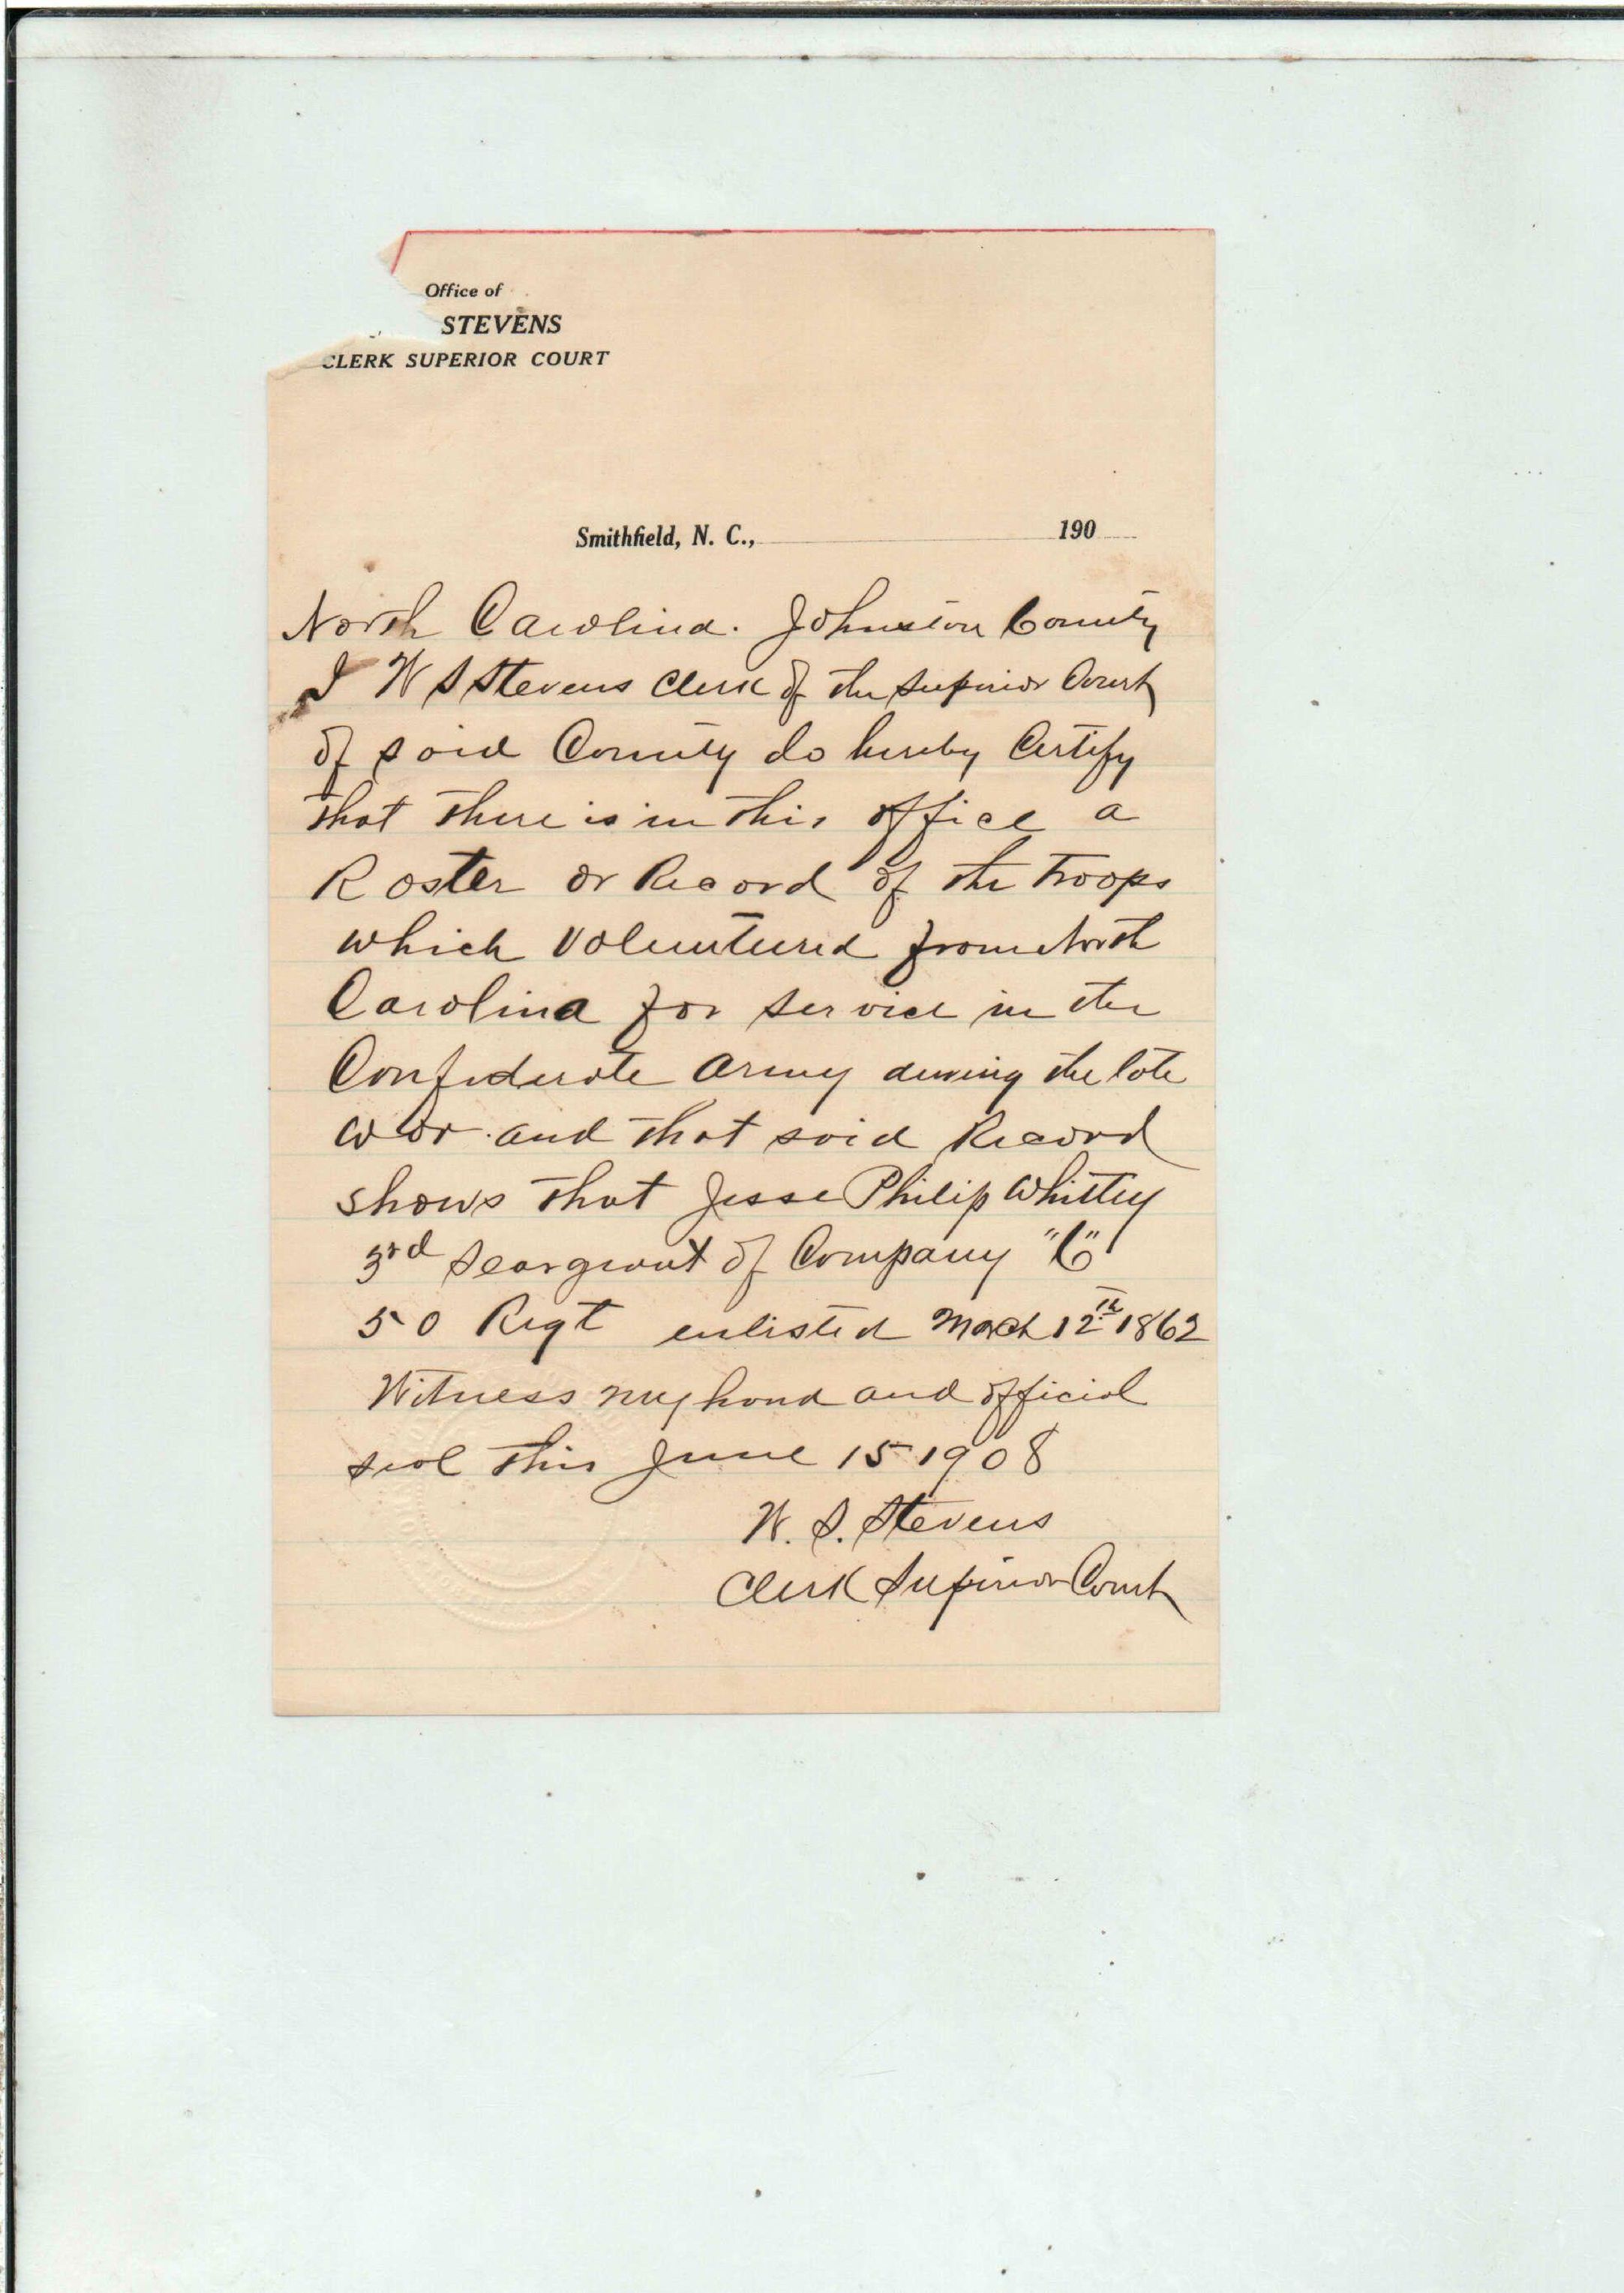 Office of
STEVENS
CLERK SUPERIOR COURT
Smithfield, N. C., 190
North Carolina. Johnston County
I W S Stevens Clerk of the Superior Court
of said County do hereby Certify
that there is in this office a
Roster or Record of the Troops
which Volunteered from North
Carolina for service in the
Confederate Army during the late
War. and that said Record
shows that Jesse Philip Whitley
3rd Seargeant of Company "C"
50 Regt enlisted March 12th 1862
Witness my hand and official
seal this June 15 1908
W. S. Stevens
Clerk Superior Court